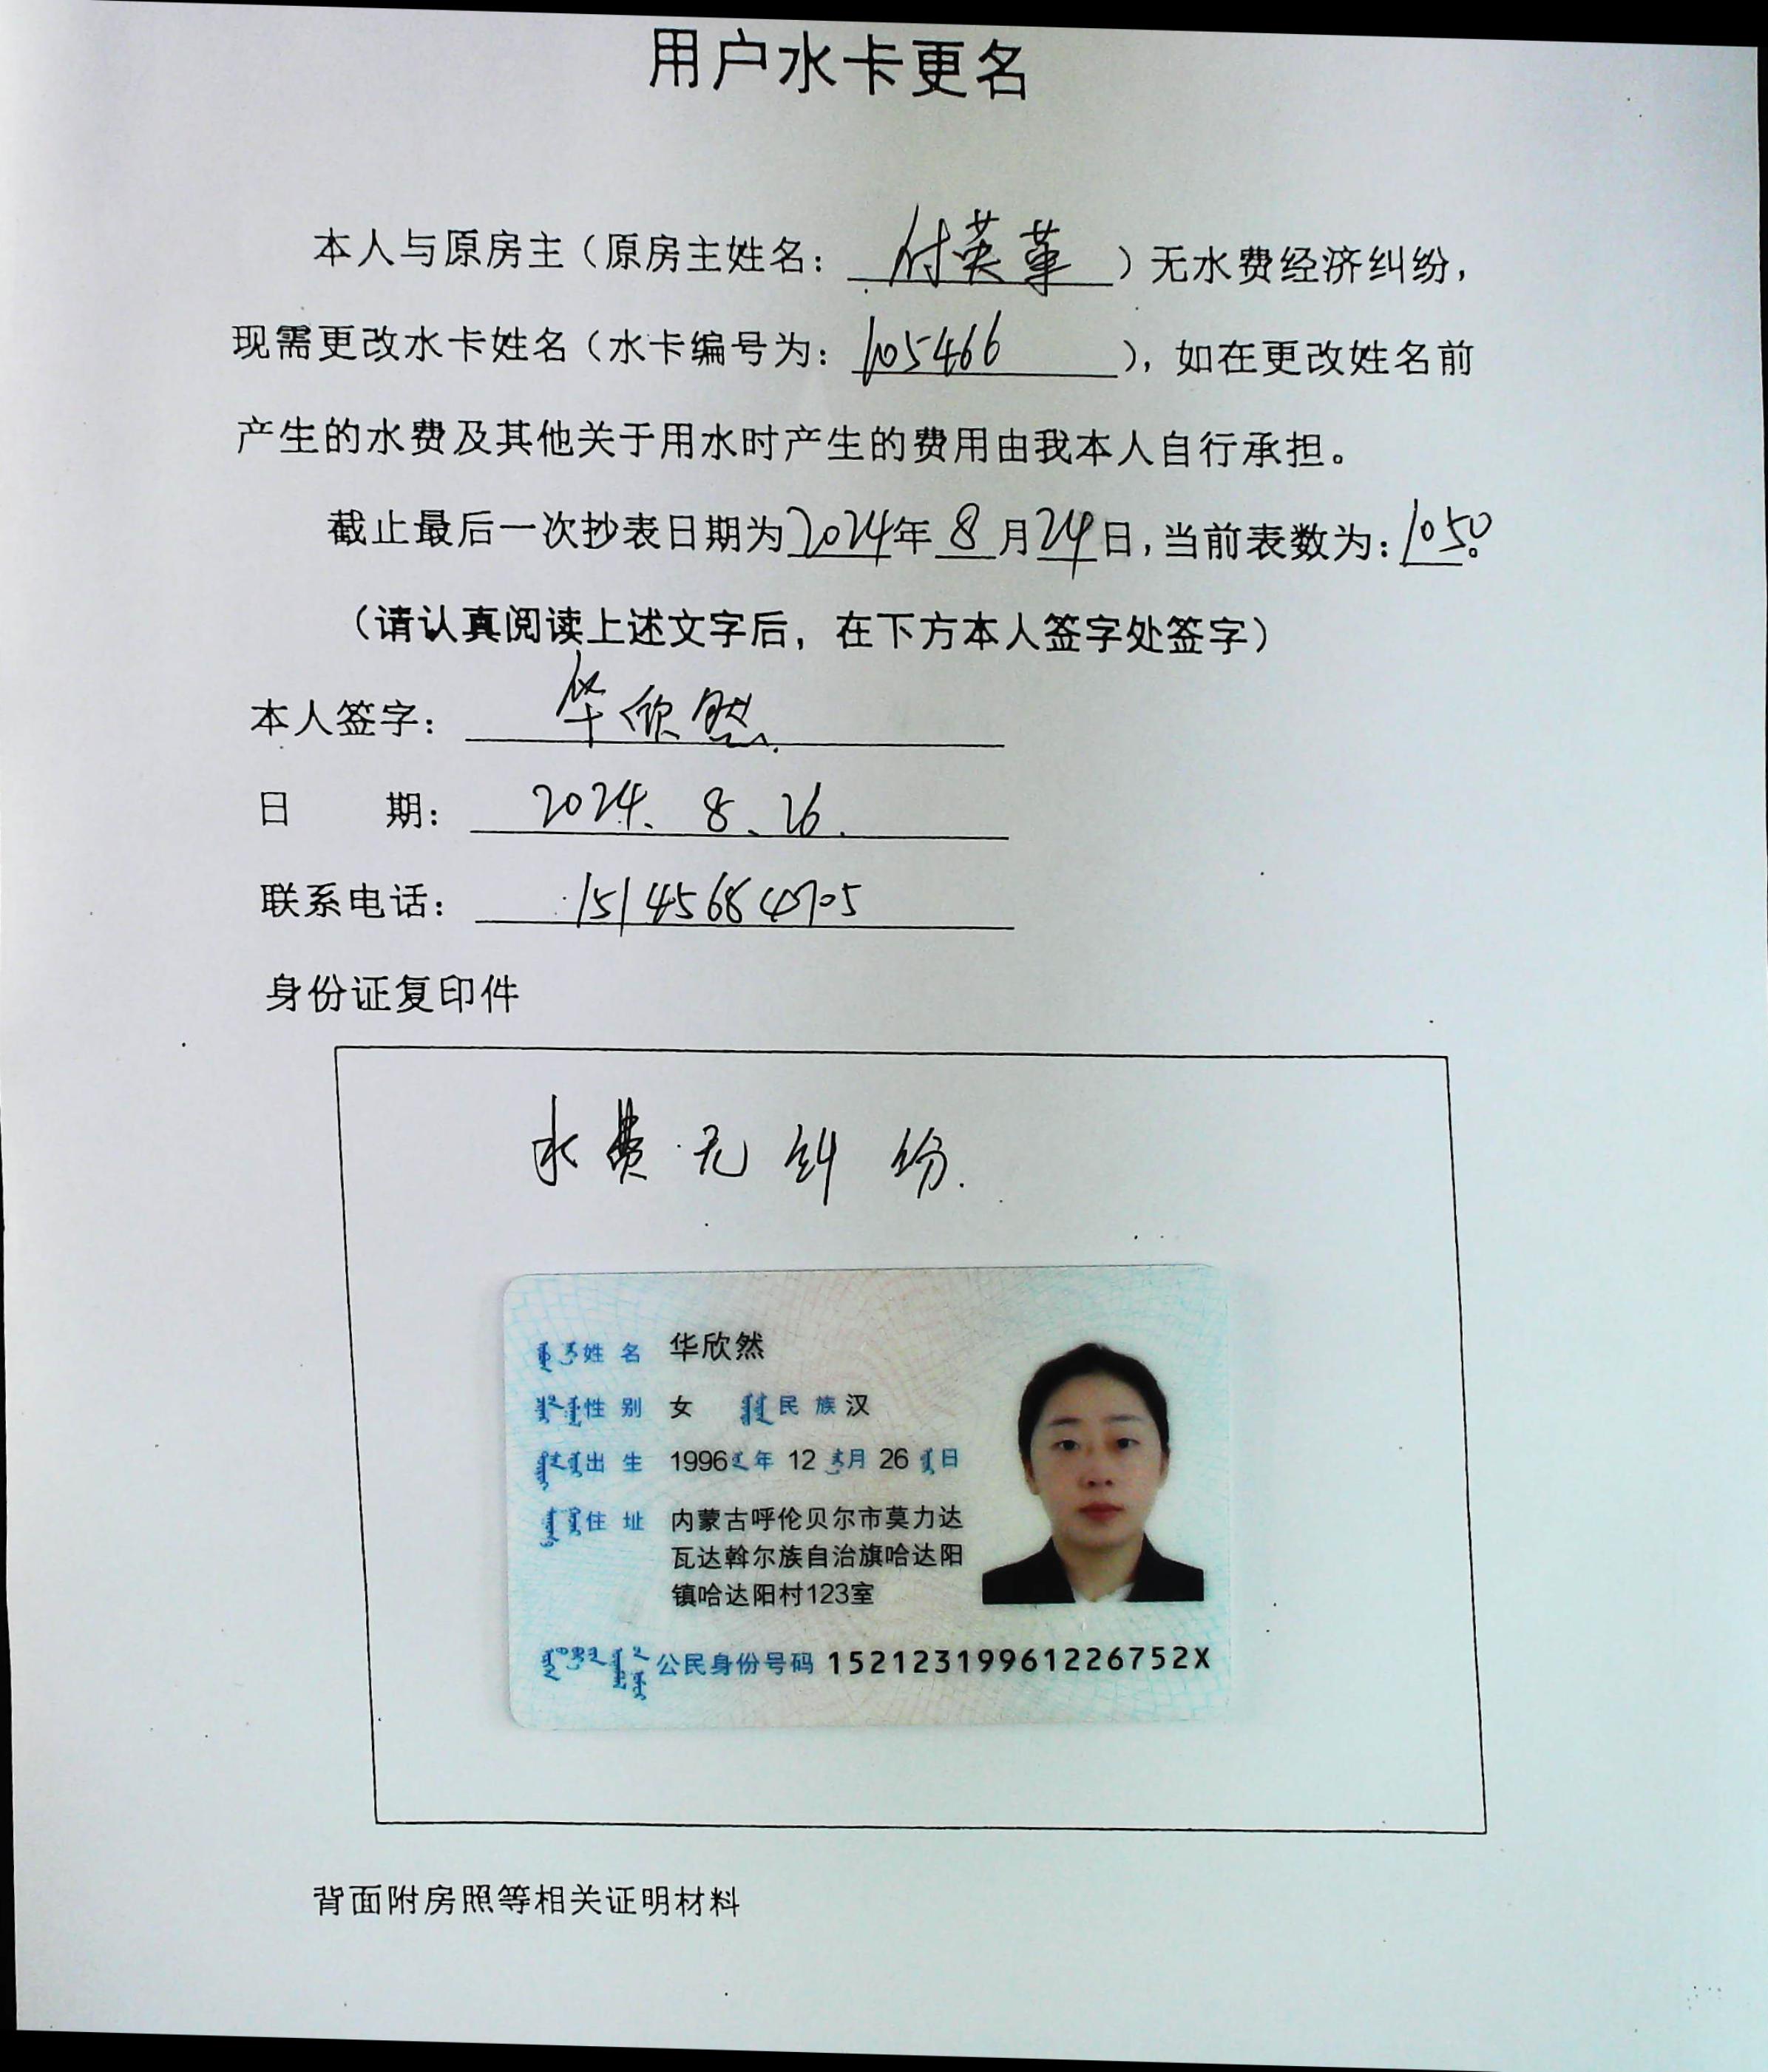 用户水卡更名
本人与原房主（原房主姓名：付英華）无水费经济纠纷，
现需更改水卡姓名（水卡编号为：105466），如在更改姓名前
产生的水费及其他关于用水时产生的费用由我本人自行承担。
截止最后一次抄表日期为2024年8月24日，当前表数为：1050。
（请认真阅读上述文字后，在下方本人签字处签字）
本人签字：华欣然
日 期：2024. 8. 26.
联系电话：15145684705
身份证复印件
水费无纠纷.
姓名 华欣然
性别 女 民族 汉
出生 1996年12月26日
住址 内蒙古呼伦贝尔市莫力达
瓦达斡尔族自治旗哈达阳
镇哈达阳村123室
公民身份号码 15212319961226752X
背面附房照等相关证明材料